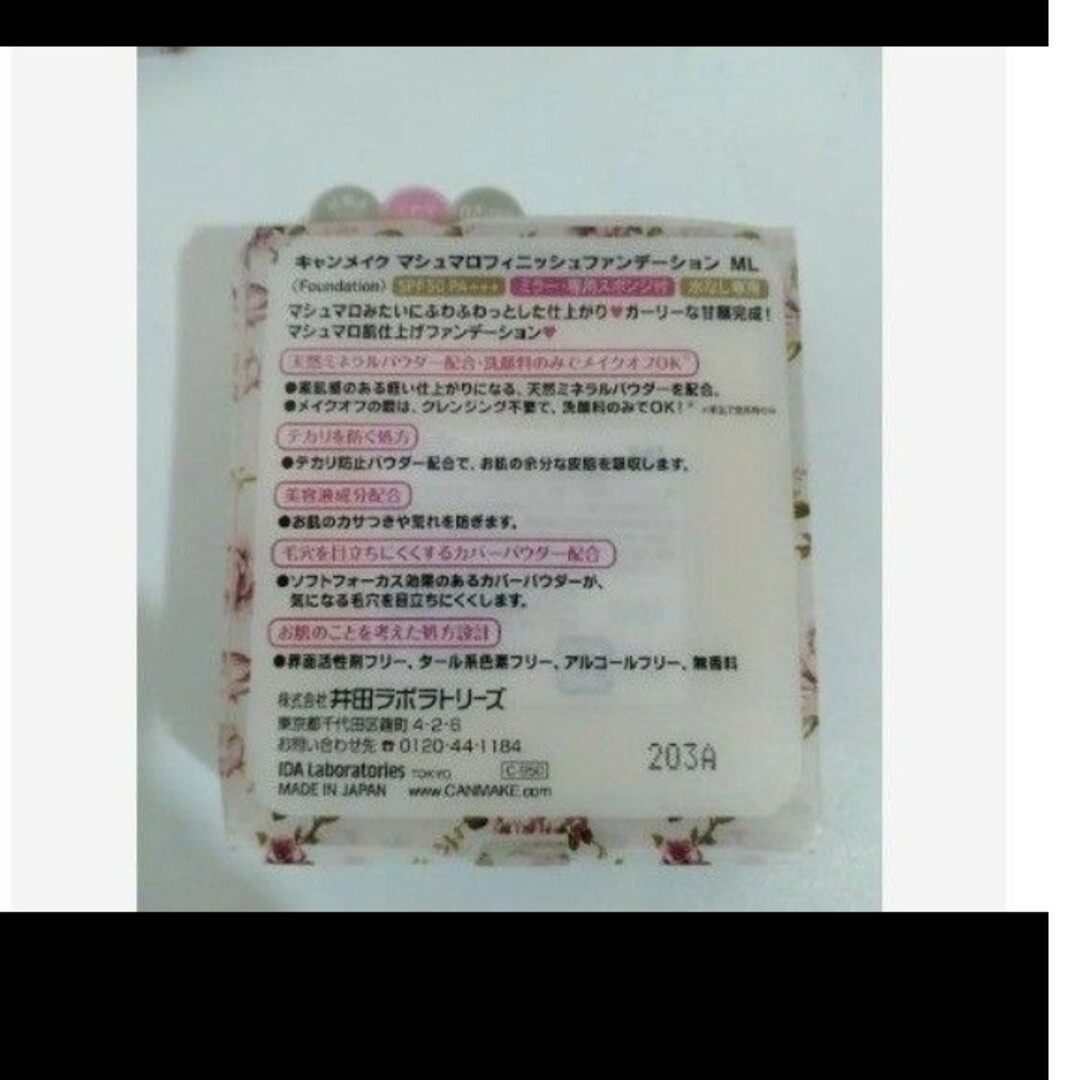 キャンメイク マシュマロフィニッシュファンデーション ML
(Foundation) SPF50 PA+++ ミラー・専用スポンジ付 水なし専用
マシュマロみたいにふわふわっとした仕上がり♥ガーリーな甘顔完成!
マシュマロ肌仕上げファンデーション♥
天然ミネラルパウダー配合・洗顔料のみでメイクオフOK*
●素肌感のある軽い仕上がりになる、天然ミネラルパウダーを配合。
●メイクオフの際は、クレンジング不要で、洗顔料のみでOK!*
テカリを防ぐ処方
●テカリ防止パウダー配合で、お肌の余分な皮脂を吸収します。
美容液成分配合
●お肌のカサつきや荒れを防ぎます。
毛穴を目立ちにくくするカバーパウダー配合
●ソフトフォーカス効果のあるカバーパウダーが、
気になる毛穴を目立ちにくくします。
お肌のことを考えた処方設計
●界面活性剤フリー、タール系色素フリー、アルコールフリー、無香料
株式会社 井田ラボラトリーズ
東京都千代田区麹町 4-2-6
お問い合わせ先 ☎ 0120-44-1184
IDA Laboratories TOKYO
MADE IN JAPAN www.CANMAKE.com
203A